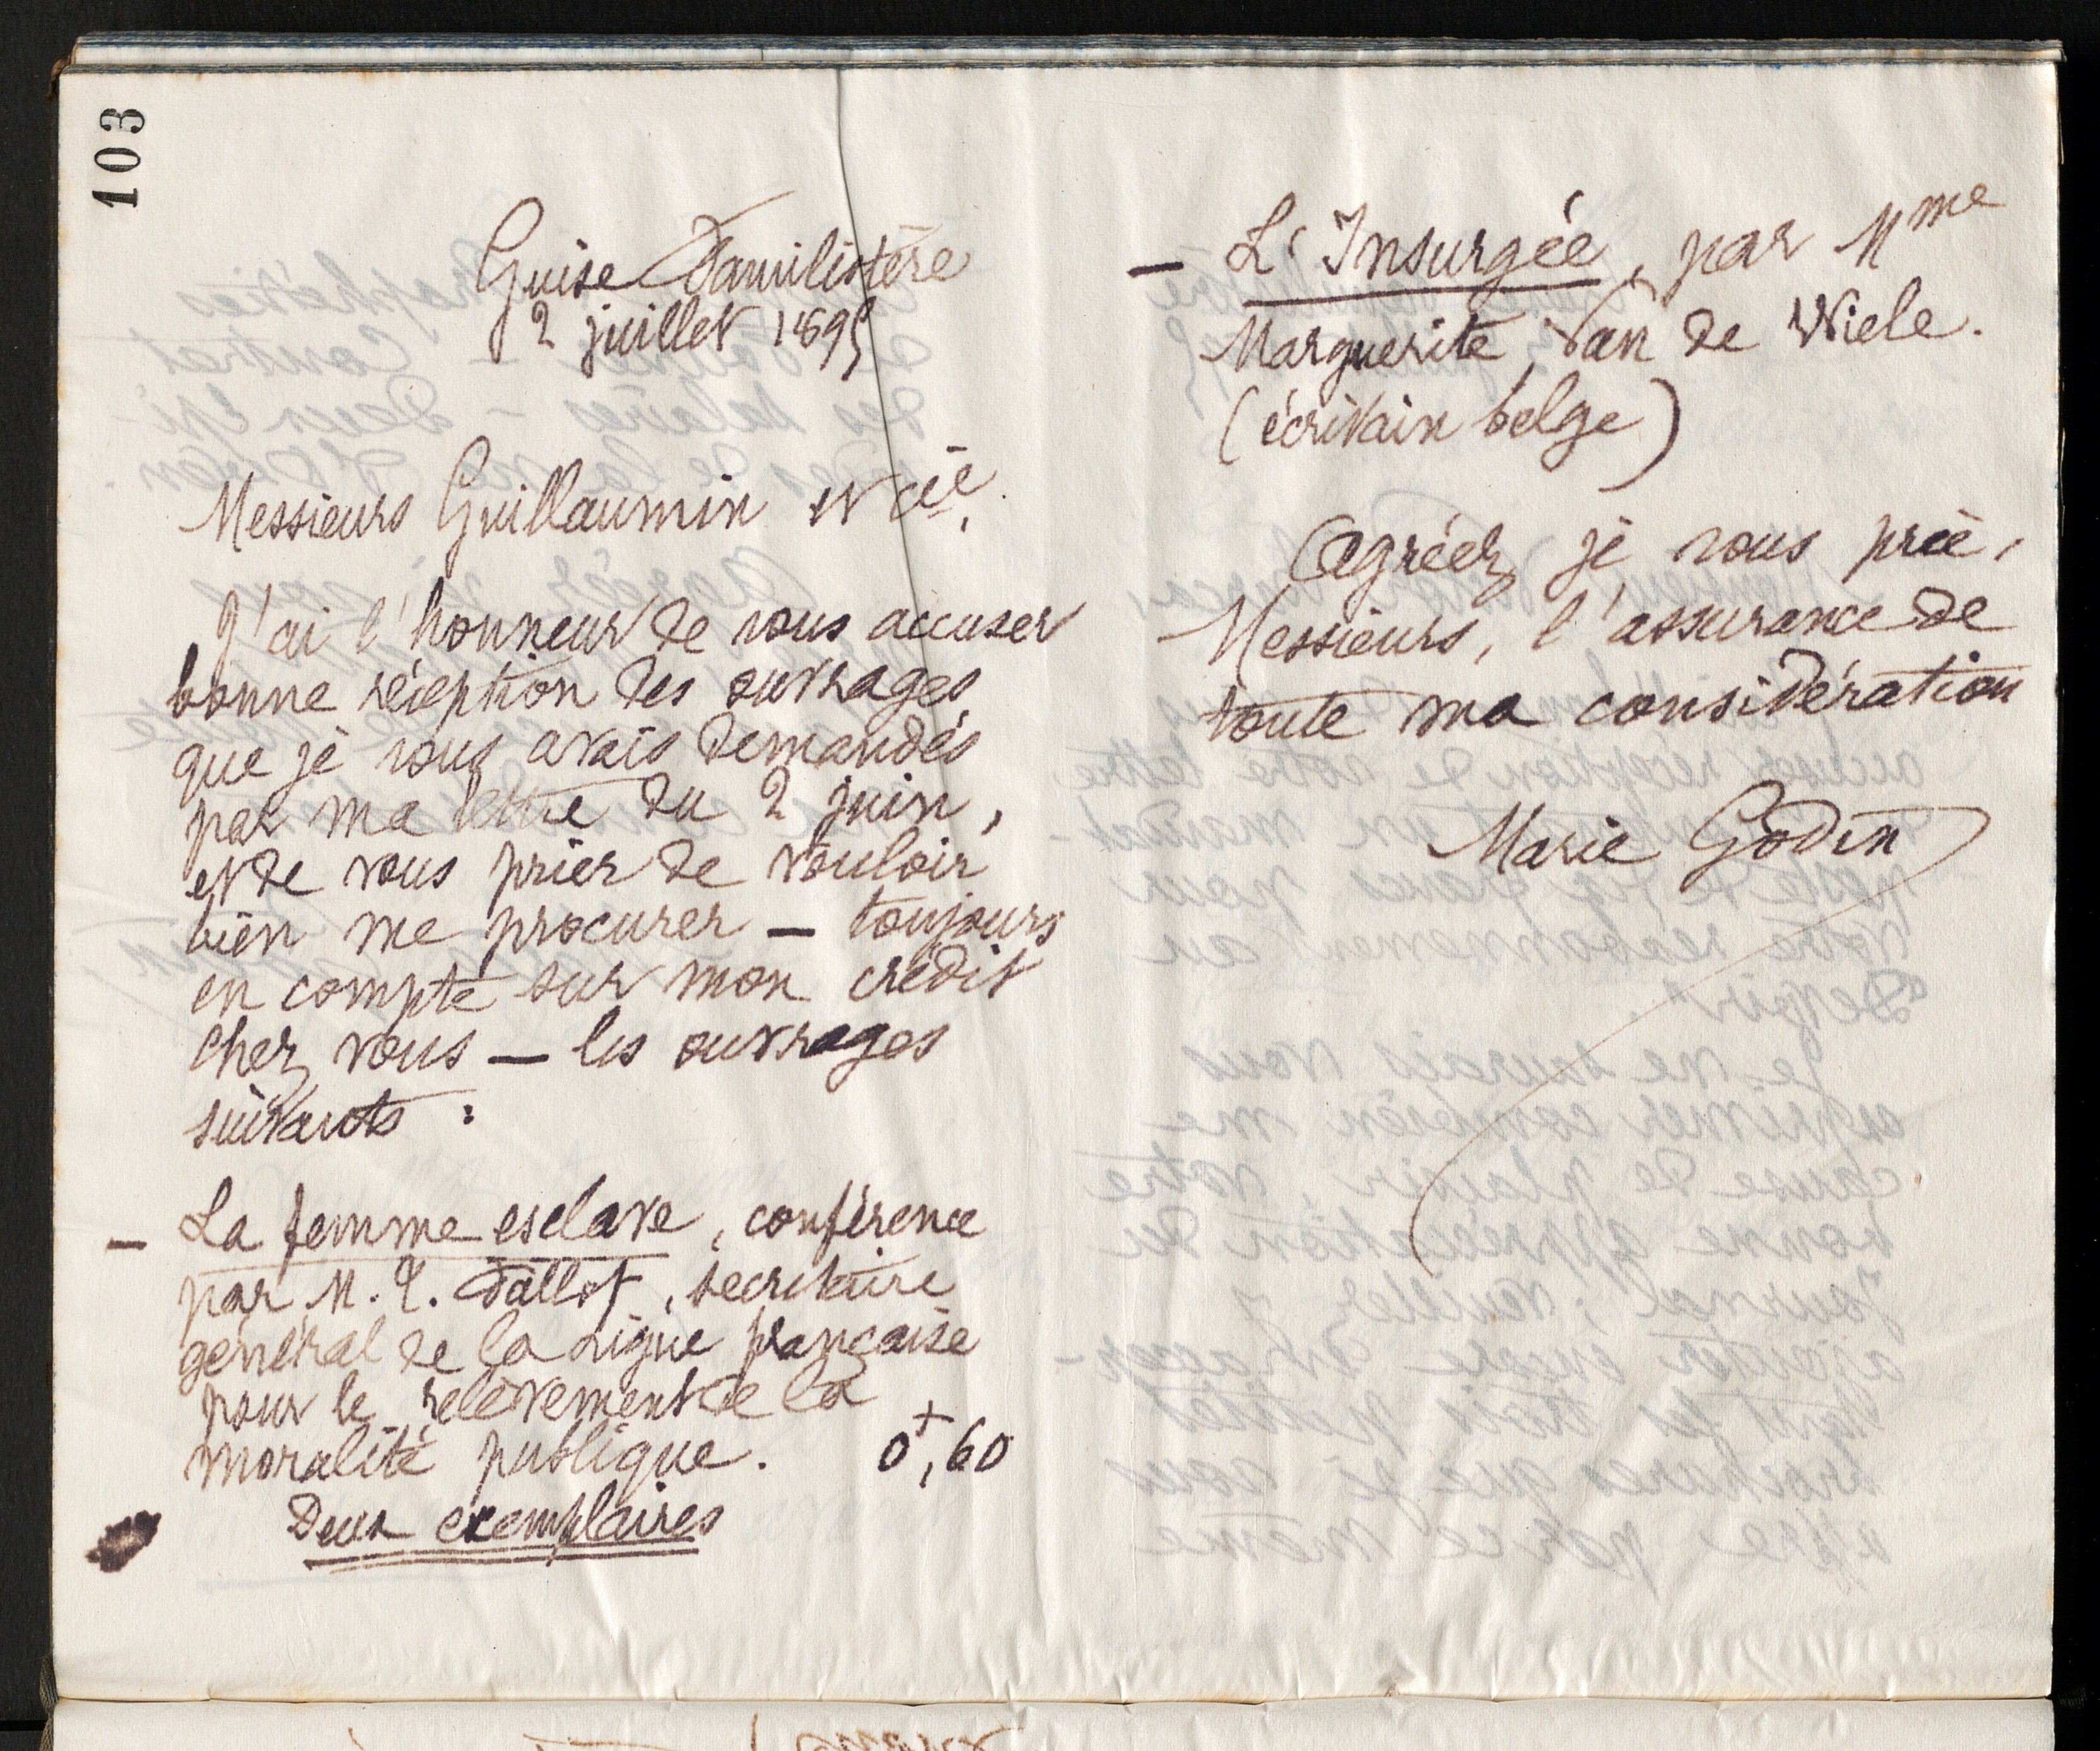 103
Guise Familistère
2 juillet 1895
Messieurs Guillaumin et Cie,
J'ai l'honneur de vous accuser
bonne réception des ouvrages
que je vous avais demandés
par ma lettre du 2 juin,
et de vous prier de vouloir
bien me procurer — toujours
en compte sur mon crédit
chez vous — les ouvrages
suivants :
— La femme esclave, conférence
par M. T. Fallot, secrétaire
général de la Ligue française
pour le relèvement de la
moralité publique. 0f,60
Deux exemplaires
— L'Insurgée, par Mme
Marguerite Van de Wiele.
(écrivain belge)
Agréez, je vous prie,
Messieurs, l'assurance de
toute ma considération
Marie Godin